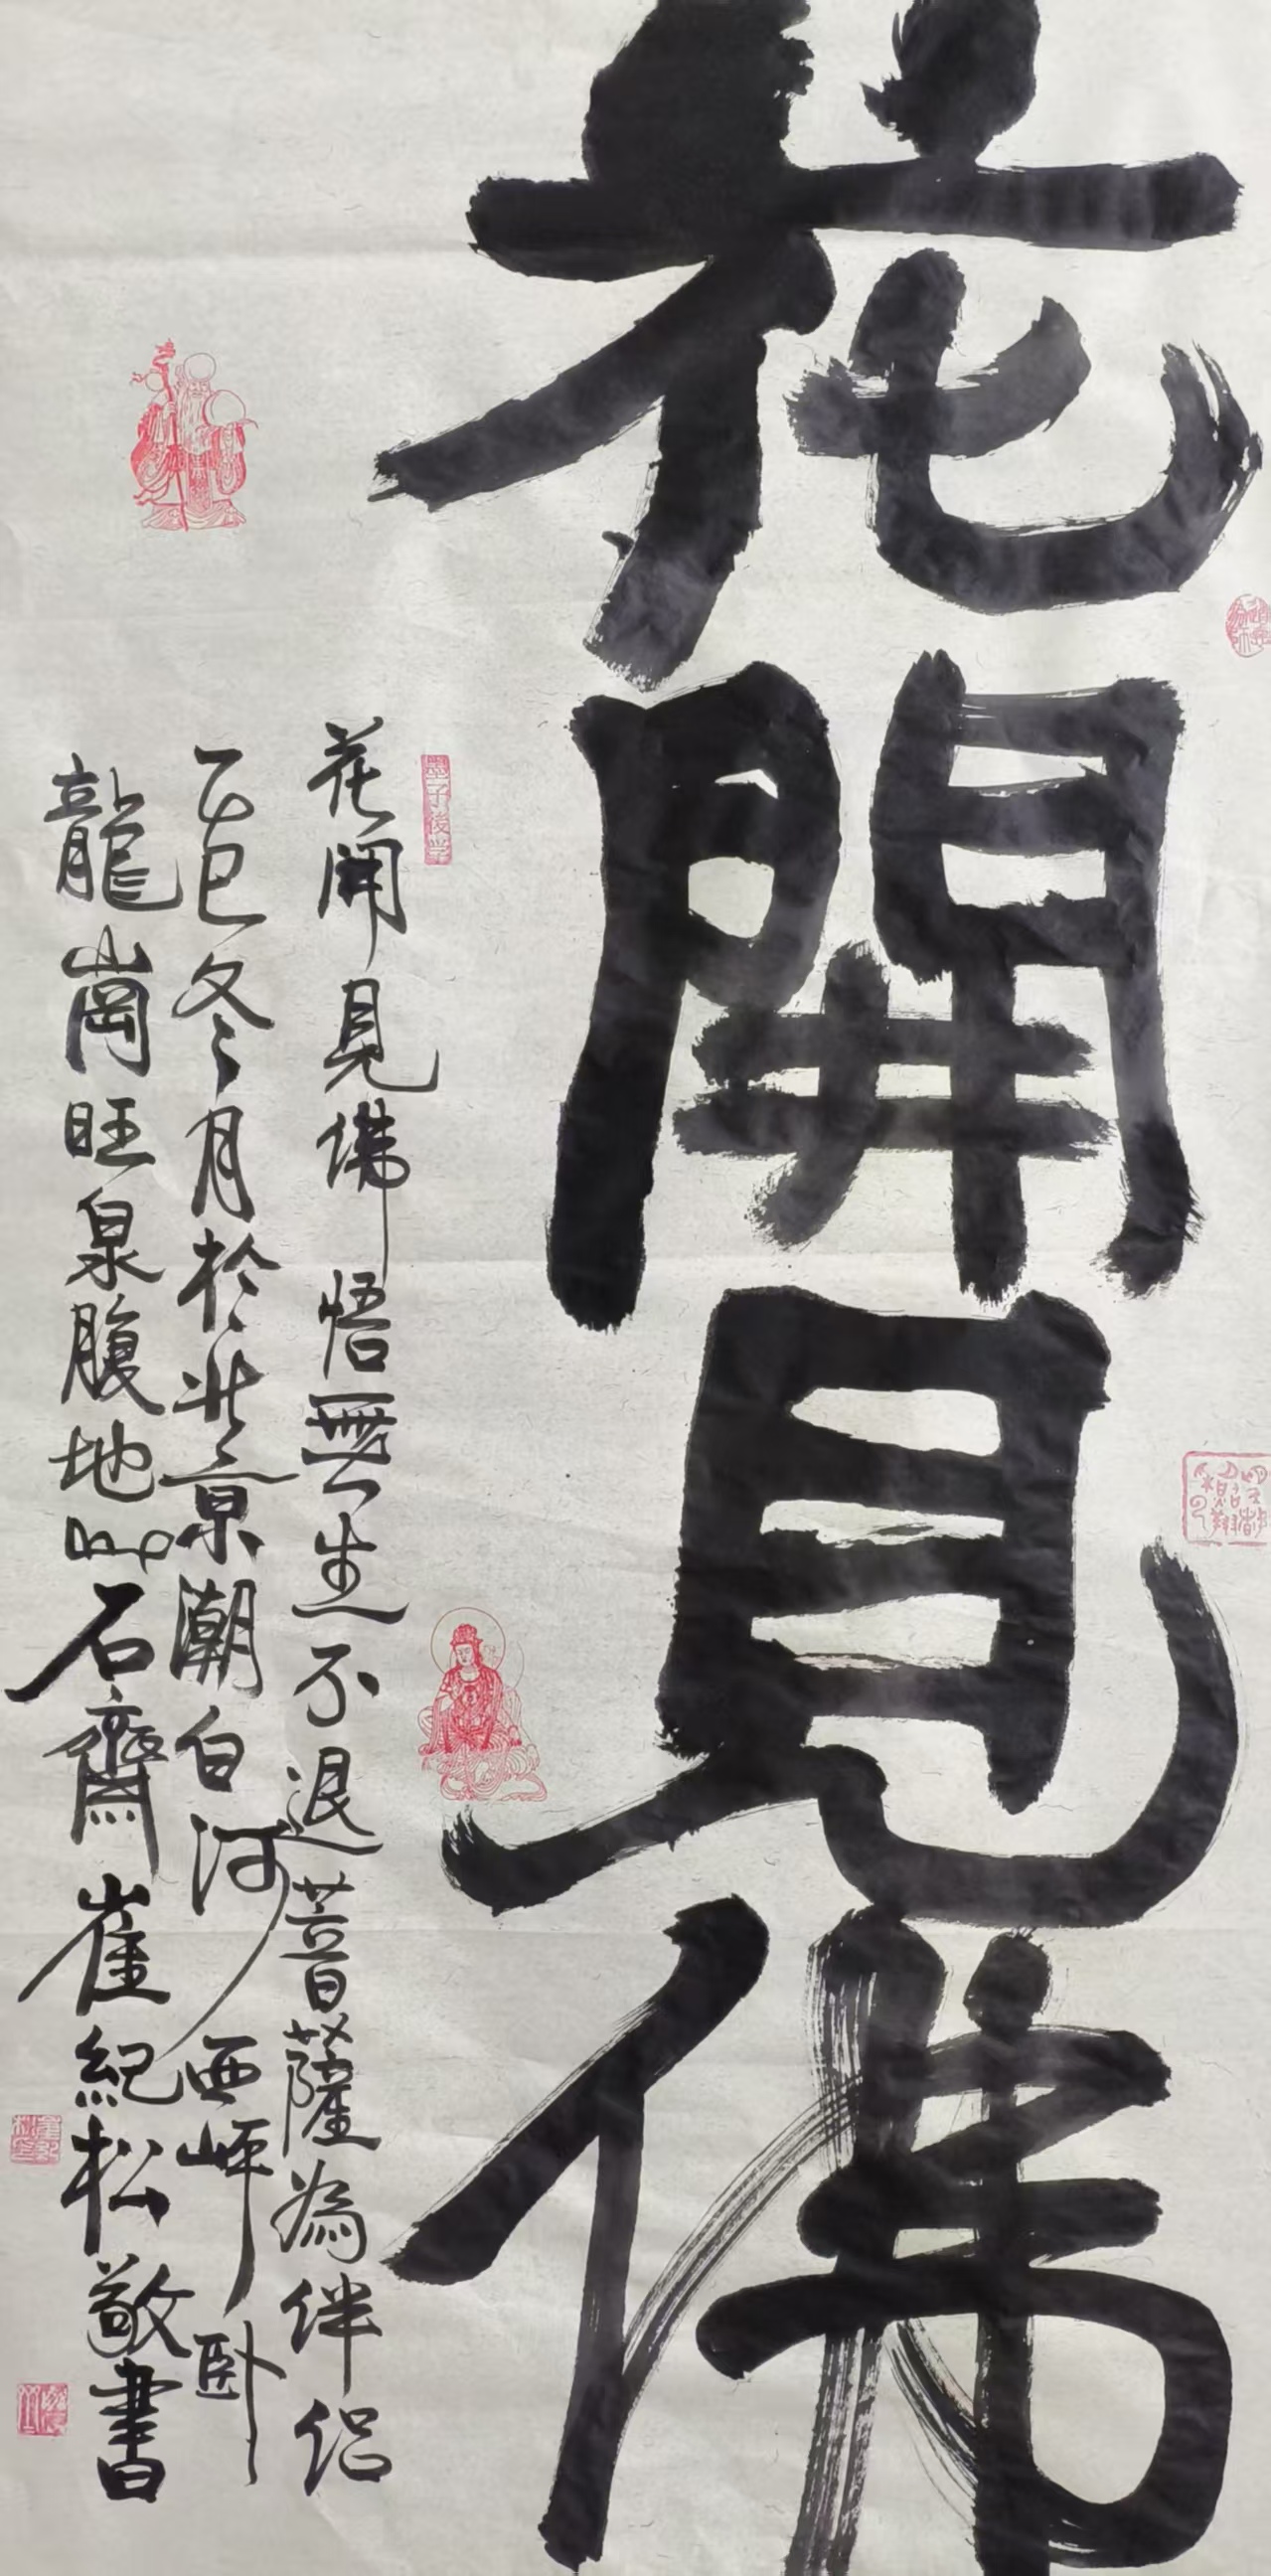 花開見佛
花開見佛悟無生不退菩薩為伴侣
乙巳冬月於北京潮白河西岸卧
龍崗旺泉腹地心石齋崔紀松敬書
墨子後学